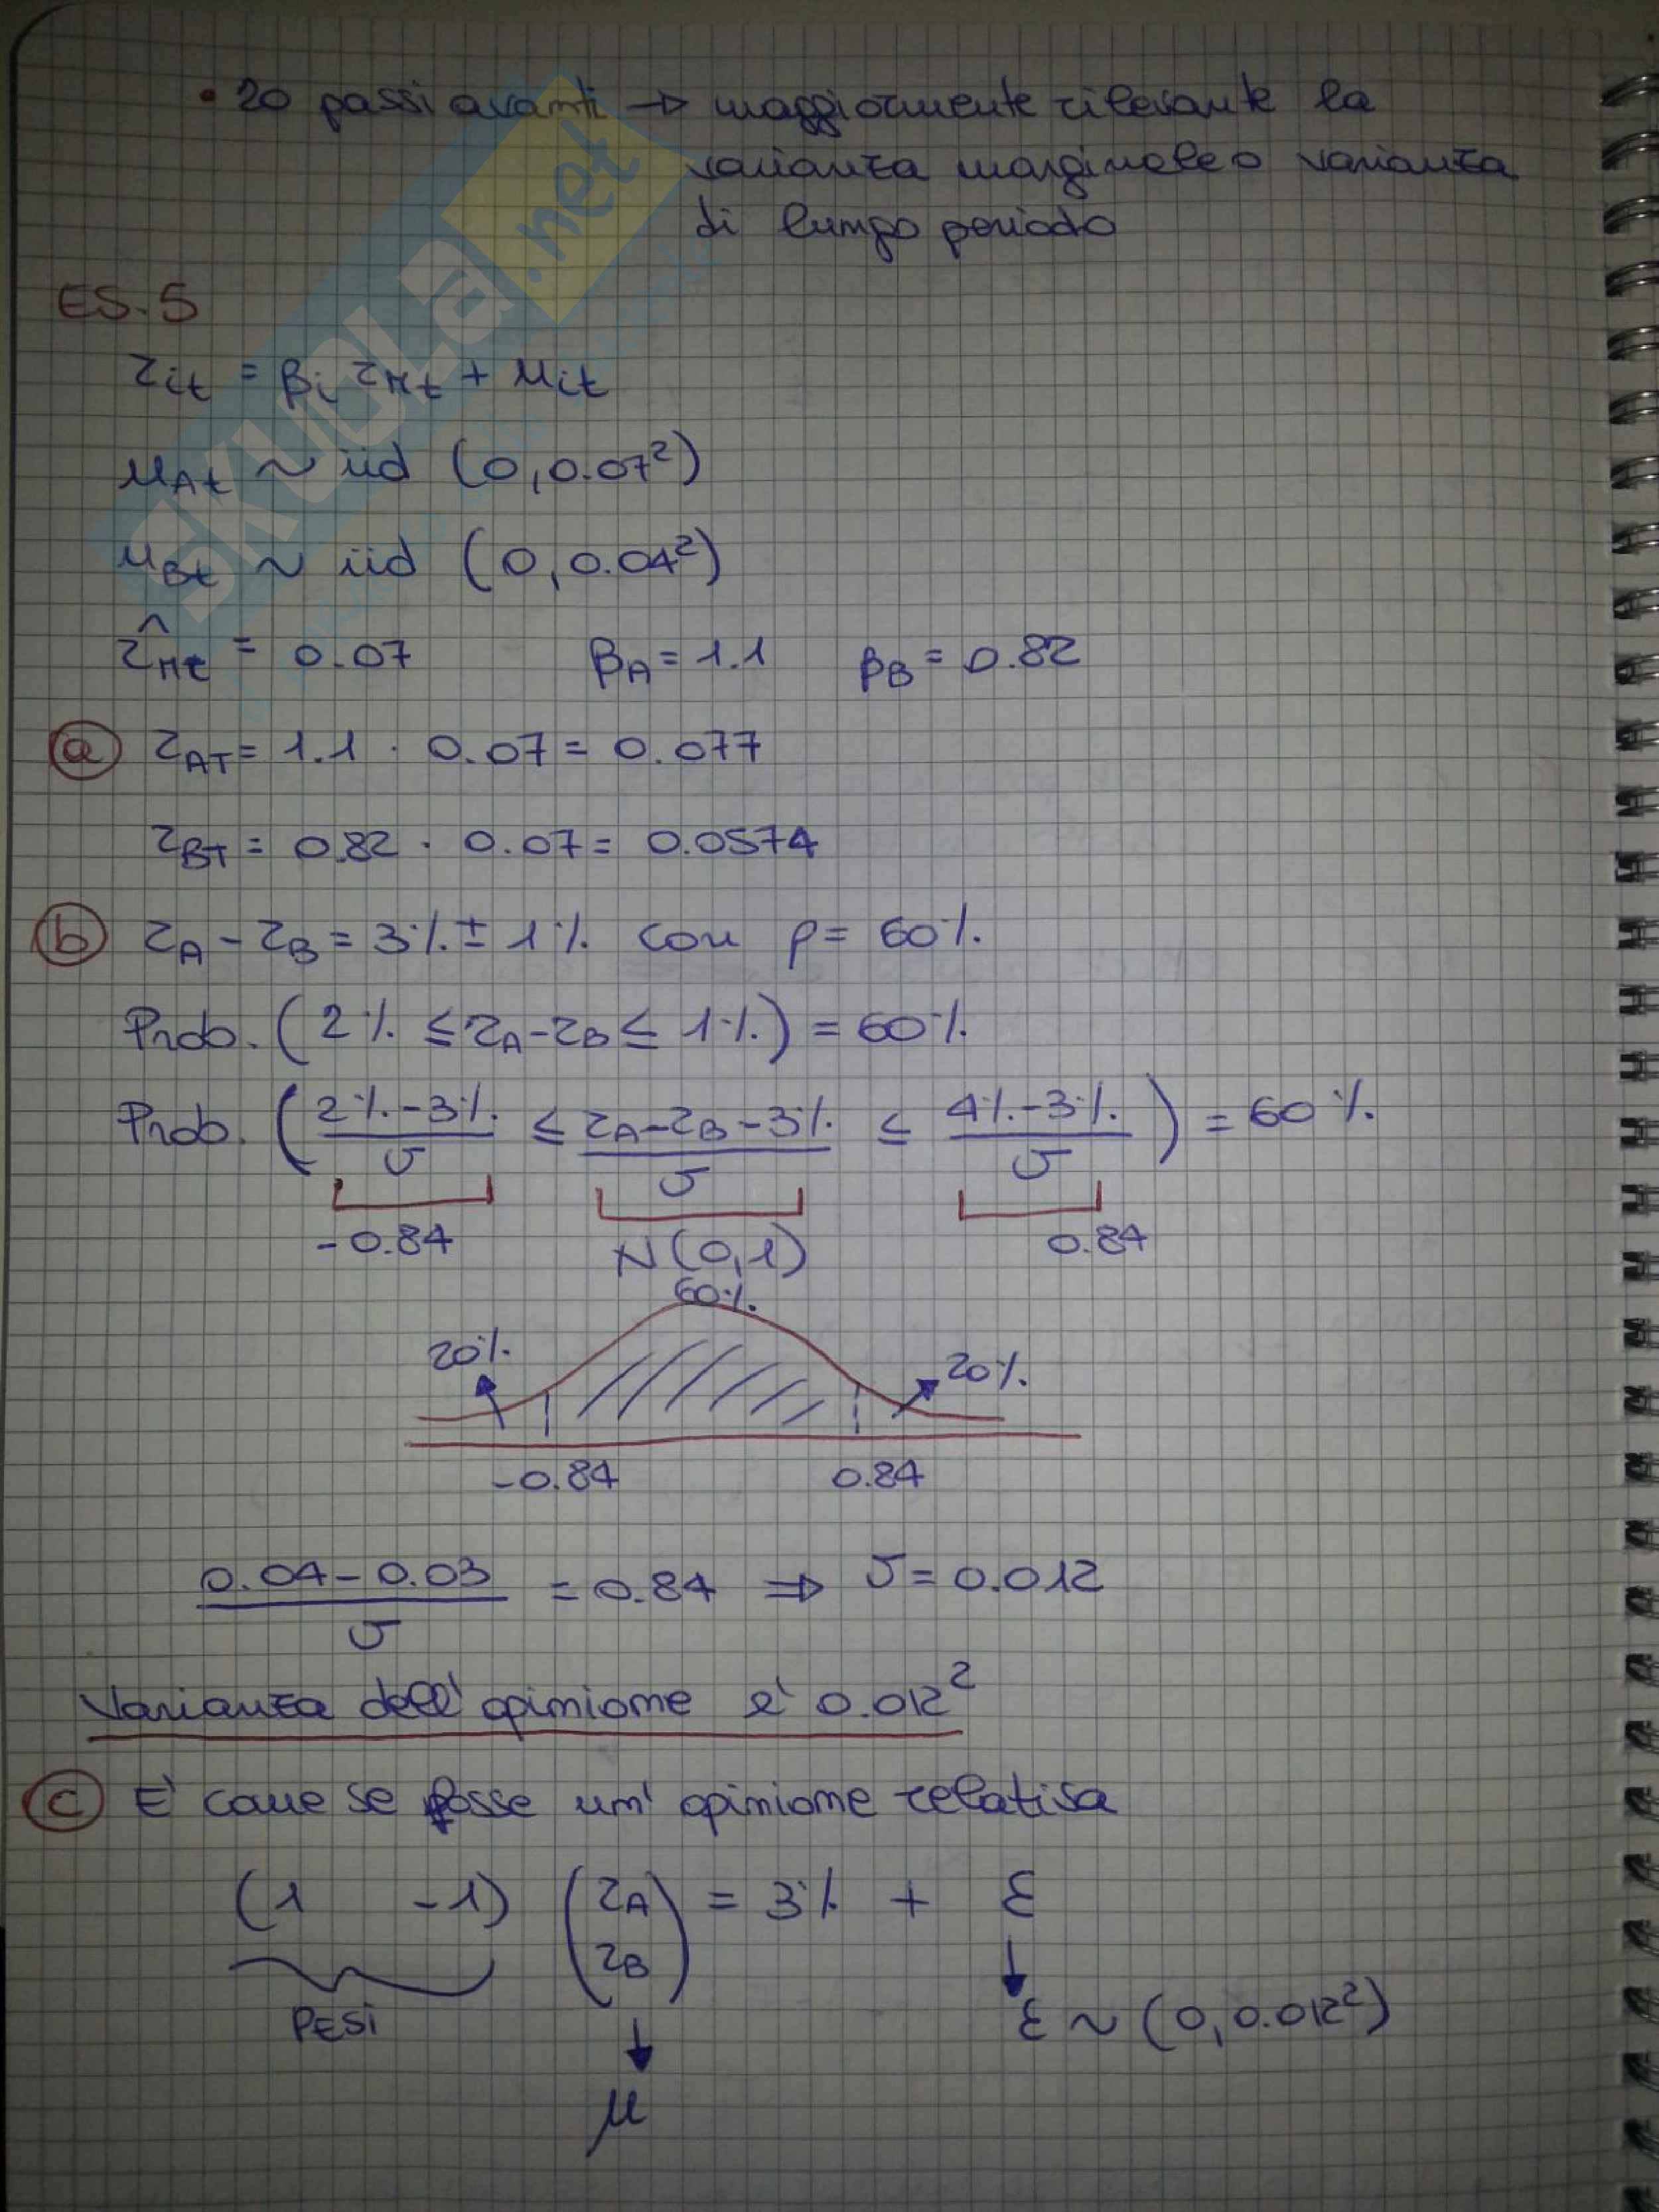 • 20 passi avanti → maggiormente rilevante la
varianza marginale o varianza
di lungo periodo
SKUOLA.net
ES. 5
r_it = β_i r_Mt + μ_it
μ_At ~ iid (0, 0.07²)
μ_Bt ~ iid (0, 0.04²)
r̂_Mt = 0.07 β_A = 1.1 β_B = 0.82
(a) r_AT = 1.1 · 0.07 = 0.077
r_BT = 0.82 · 0.07 = 0.0574
(b) r_A - r_B = 3% ± 1% con p = 60%
Prob. (2% ≤ r_A - r_B ≤ 1%) = 60%
Prob. ((2% - 3%)/σ ≤ (r_A - r_B - 3%)/σ ≤ (4% - 3%)/σ) = 60%
-0.84 N(0,1) 0.84
60%
20% 20%
-0.84 0.84
(0.04 - 0.03)/σ = 0.84 ⇒ σ = 0.012
Varianza dell'opinione è 0.012²
(c) E' come se fosse un'opinione relativa
(1 -1) (r_A r_B) = 3% + ε
PESI
ε ~ (0, 0.012²)
μ